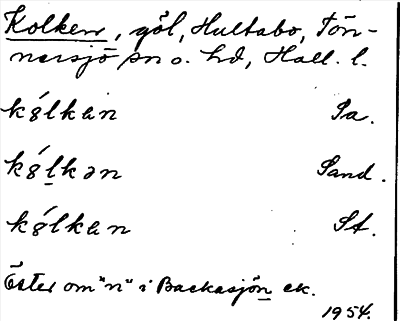 Kolken, göl, Hultabo, Tön-
nersjö sn o. hd, Hall. l.
kólkan Sa.
kólkən Sand.
kólkan St.
Öster om "n" i Backasjön ek.
1954.